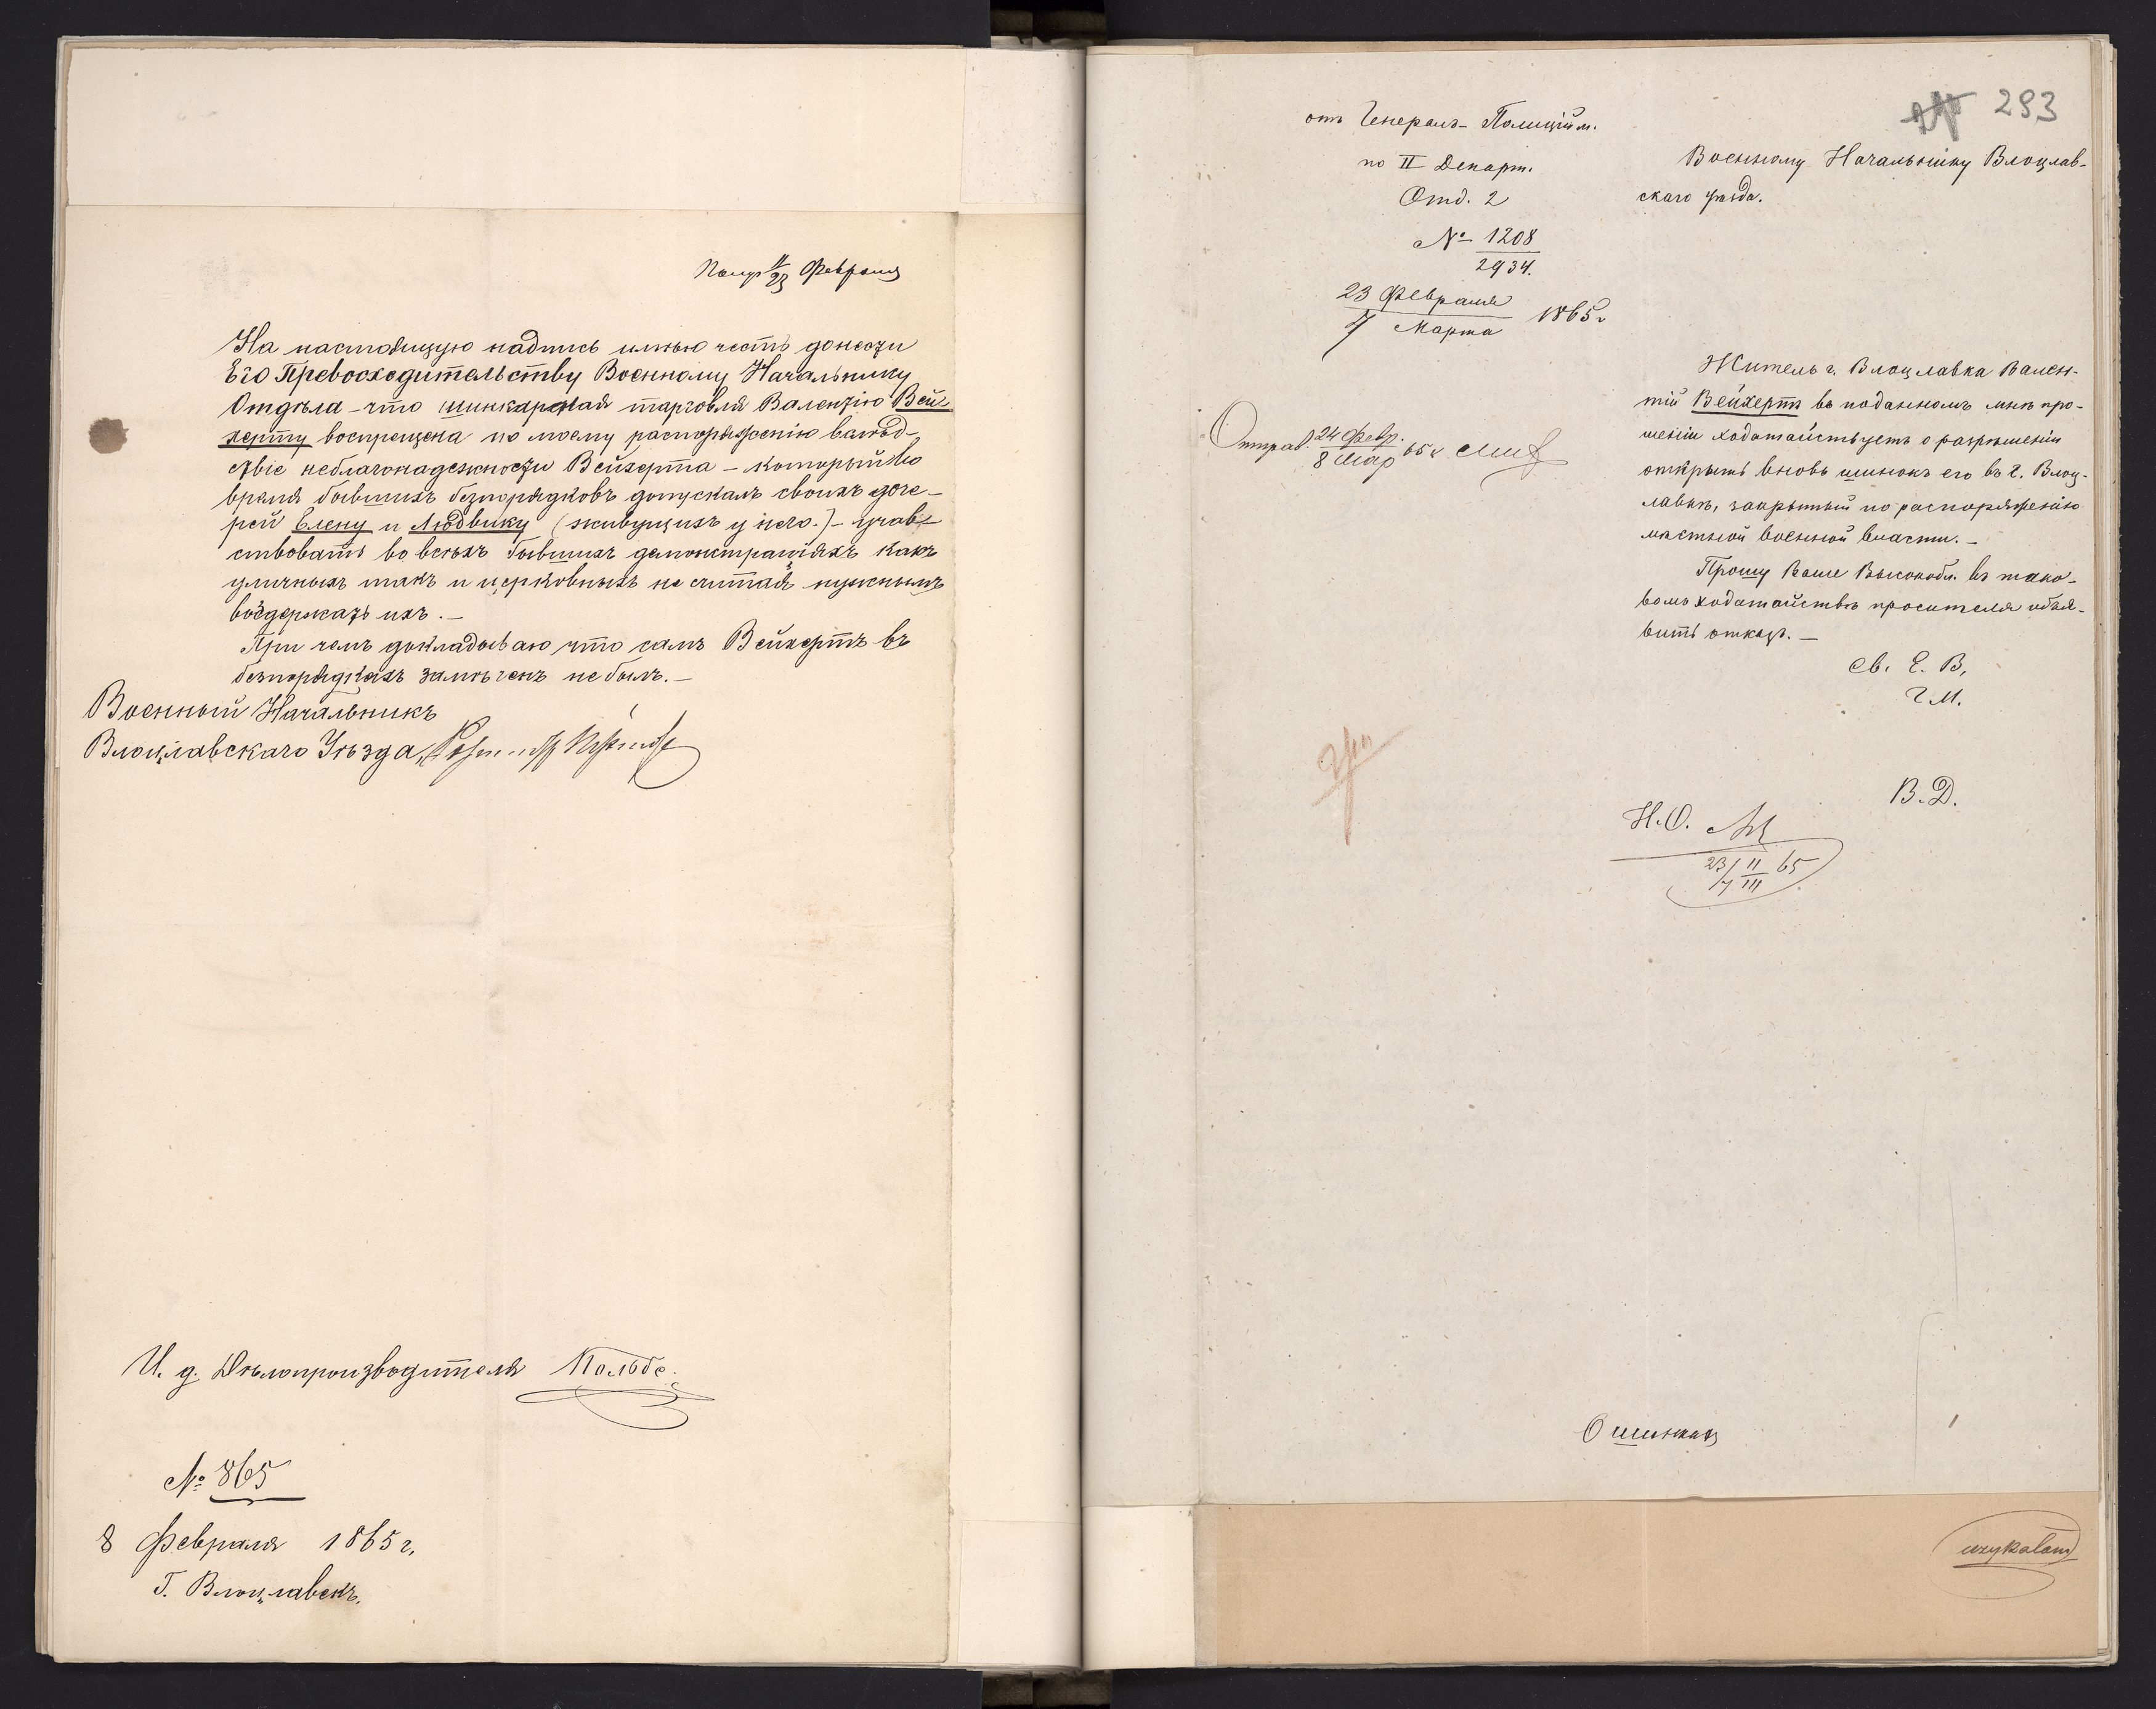 Получ 11/23 Февраля
На настоящую надпись имѣю честь донести
Его Превосходительству Военному Начальнику
Отдѣла – что шинкарская торговля Валентію Вей-
херту воспрещена по моему распоряженію вслѣд-
ствіе неблагонадежности Вейхерта – который во
время бывшихъ безпорядковъ допускалъ своихъ доче-
рей Елену и Людвику (живущихъ у него.) – участ-
ствовать во всѣхъ бывшихъ демонстраціяхъ какъ
уличныхъ такъ и церковныхъ не считая нужнымъ
воздержать ихъ. –
При чемъ докладываю что самъ Вейхертъ въ
безпорядкахъ замѣченъ не былъ. –
Военный Начальникъ
Влоцлавскаго Уѣзда,
И. д. Дѣлопроизводителя Кольбе.
№ 865
8 Февраля 1865 г.
Г. Влоцлавекъ.
293
отъ Генералъ-Полиційм.
по II Департ.
Отд. 2
№ 1208
2934.
23 Февраля
7 Марта 1865 г
Отправ. 24 Февр.
8 Мар 65 г.
Военному Начальнику Влоцлав-
скаго уѣзда.
Житель г. Влоцлавка Вален-
тій Вейхертъ въ поданномъ мнѣ про-
шеніи ходатайствуетъ о разрѣшеніи
открыть вновь шинокъ его въ г. Влоц-
лавкѣ, закрытый по распоряженію
мѣстной военной власти. –
Прошу Ваше Высокобл. въ тако-
вомъ ходатайствѣ просителя объя-
вить отказъ. –
Св. Е. В.
Г. М.
В. Д.
Н. О.
23/7 II/III 65
О шинкахъ